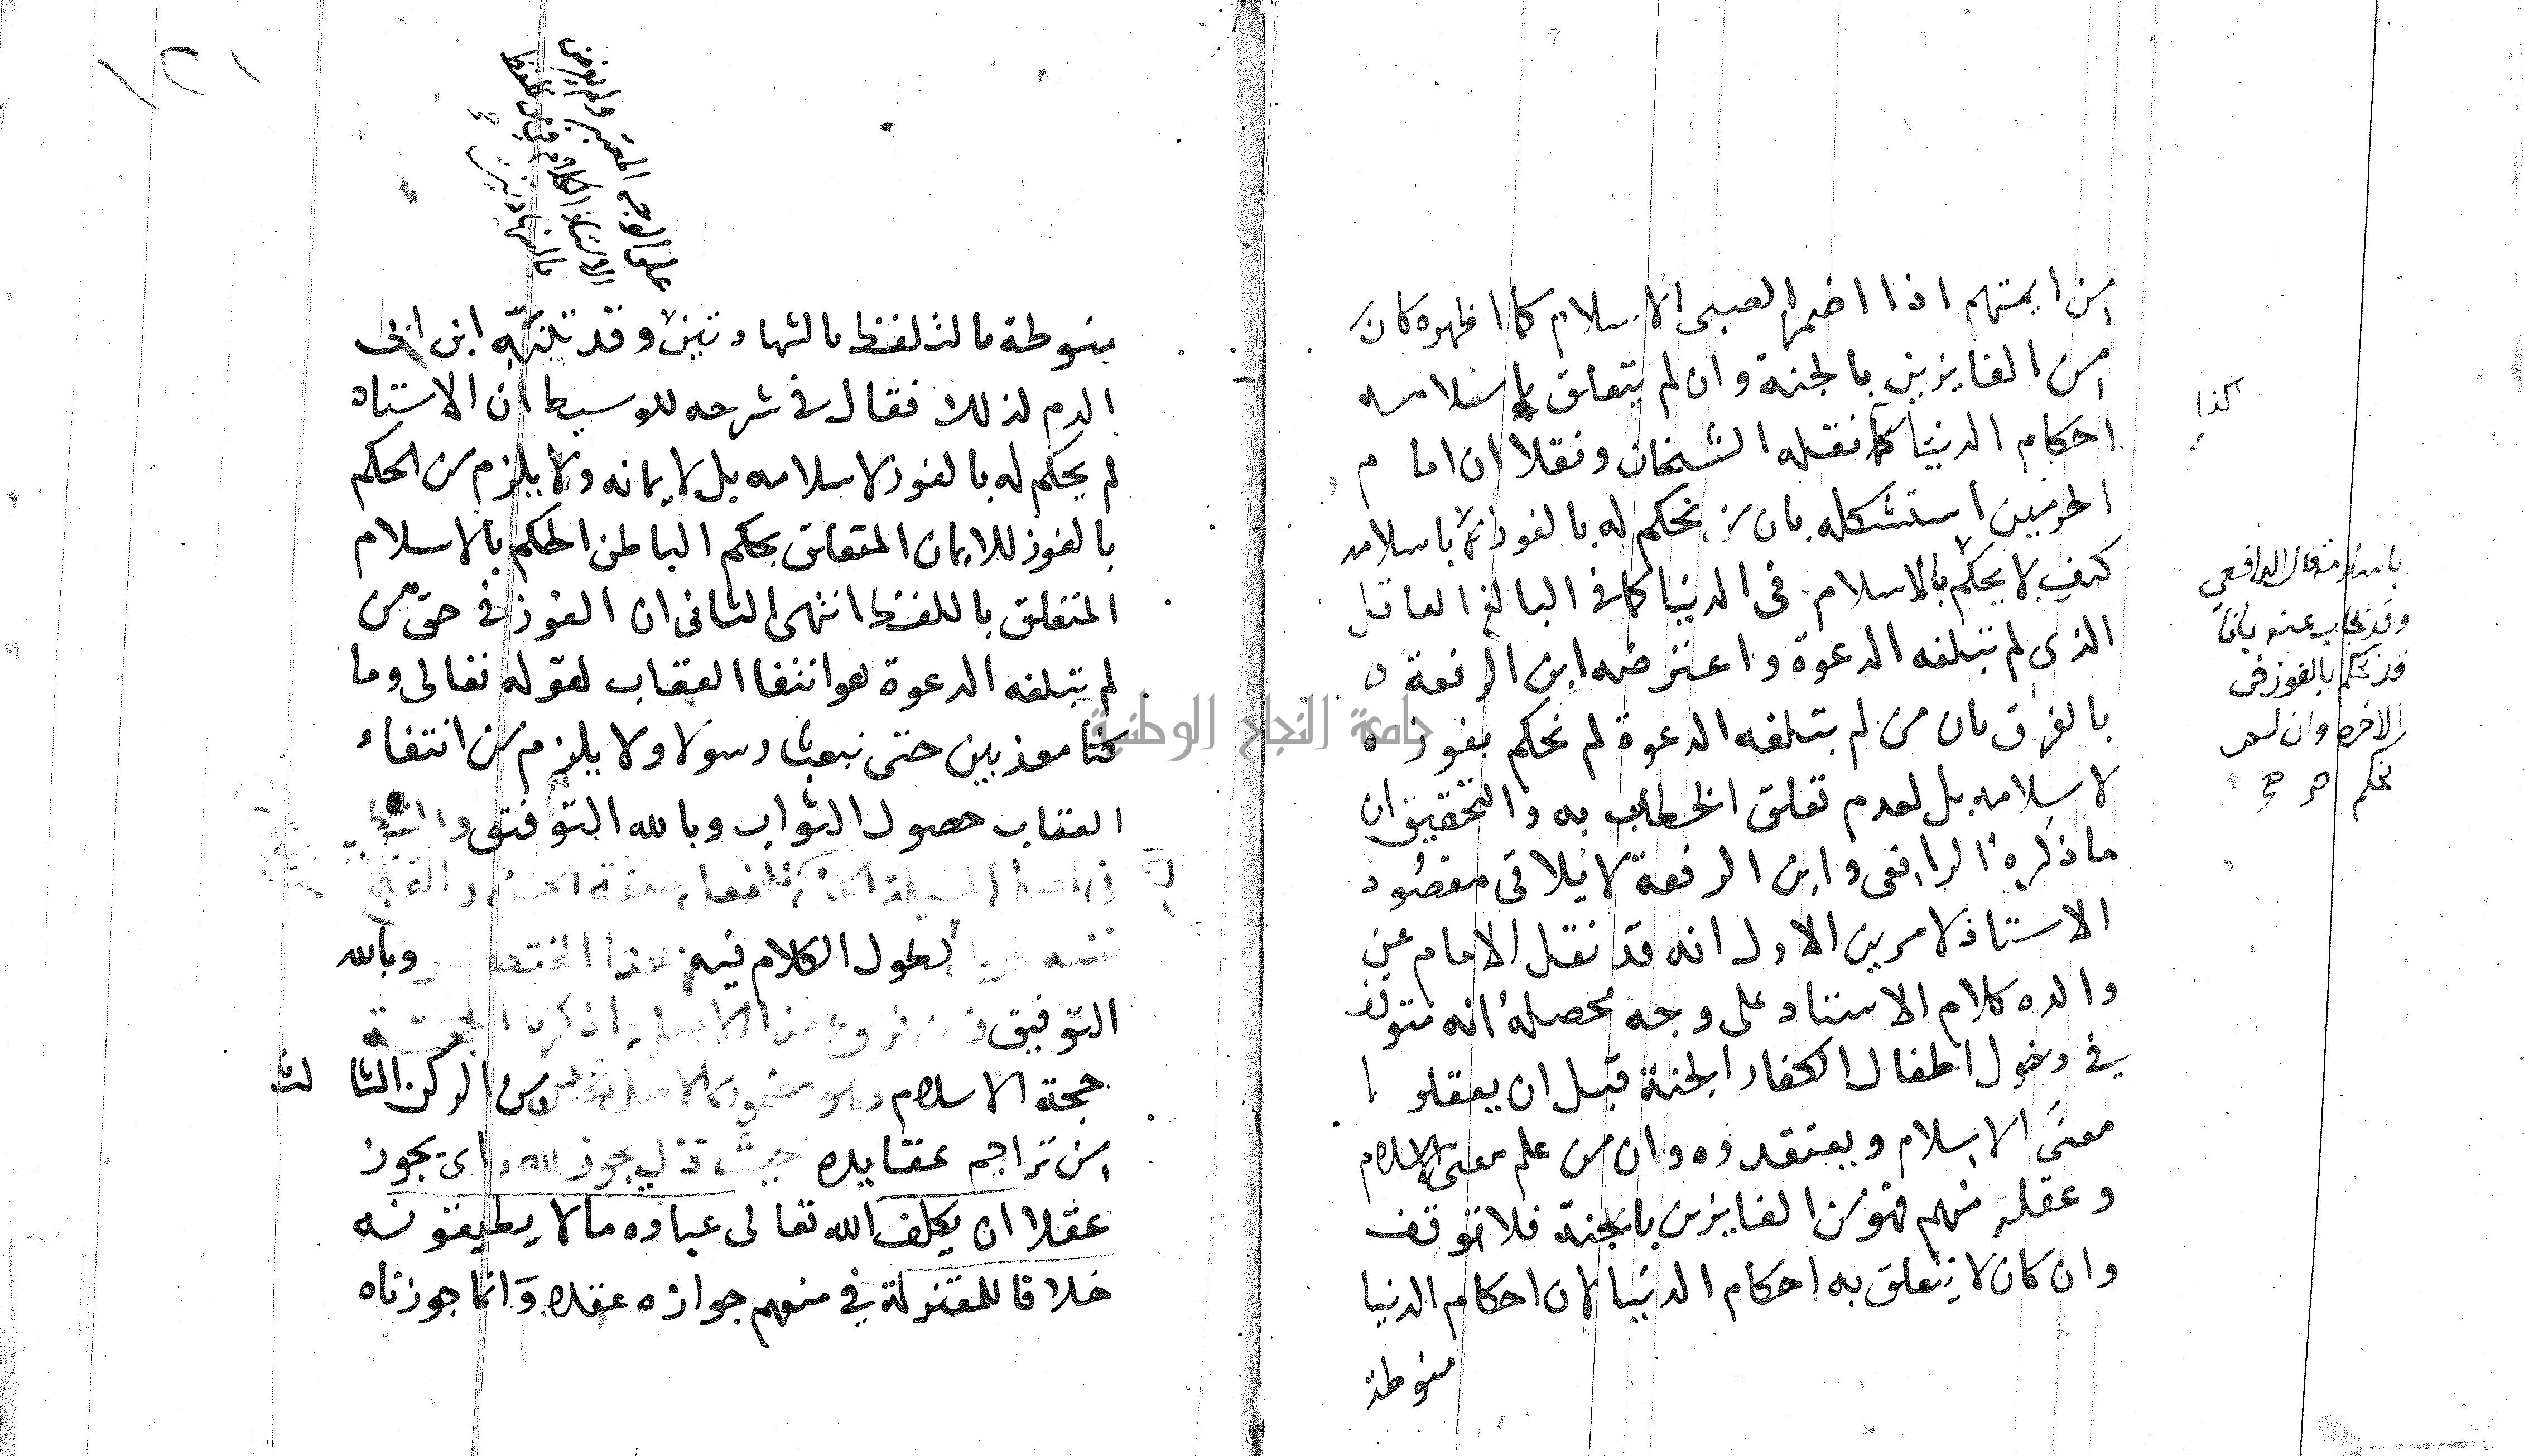 من ايمتهم اذا اضمر الصبى الاسلام كما اظهره كان
من الفايزين بالجنة وان لم يتعلق باسلامه
احكام الدنيا كما نقله الشيخان ونقلا ان امام
الحرمين استشكله بان من نحكم له بالفوز لاسلامه
كيف لا يحكم بالاسلام فى الدنيا كما فى البالغ العاقل
الذى لم تبلغه الدعوة واعترضه ابن الرفعة
بالفرق بان من لم تبلغه الدعوة لم نحكم بفوزه
لاسلامه بل لعدم تعلق الخطاب به والتحقيق ان
ما ذكره الرافعى وابن الرفعة لا يلاقى مقصود
الاستاذ لامرين الاول انه قد نقل الامام عن
والده كلام الاستاد على وجه محصله انه متوقف
فى دخول اطفال الكفار الجنة قبل ان يعقلوا
معنى الاسلام ويعتقدوه وان من علم معنى الاسلام
وعقله منهم فهو من الفايزين بالجنة فلا توقف
وان كان لا يتعلق به احكام الدنيا لان احكام الدنيا
منوطة
كذا
قال الرافعي
وقد يجاب عنه بانا
قد نحكم بالفوز فى
الاخرة وان لم
نحكم
جامعة النجاح الوطنية
١٢١
على الوجه المعتبر
بالشهادتين
منوطة بالتلفظ بالشهادتين وقد تنبه ابن ابى
الدم لذلك فقال فى شرحه للوسيط ان الاستاد
لم يحكم له بالفوز لاسلامه بل لايمانه ولا يلزم من الحكم
بالفوز للايمان المتعلق بحكم الباطن الحكم بالاسلام
المتعلق باللفظ انتهى الثانى ان الفوز فى حق من
لم تبلغه الدعوة هو انتفا العقاب لقوله تعالى وما
كنا معذبين حتى نبعث رسولا ولا يلزم من انتفاء
العقاب حصول الثواب وبالله التوفيق
لطول الكلام فيه وبالله
التوفيق
حجة الاسلام من الركن الثالث
من تراجم عقايده حيث قال يجوز لله اى يجوز
عقلا ان يكلف الله تعالى عباده ما لا يطيقونه
خلافا للمعتزلة فى منعهم جوازه عقلا وانما جوزناه